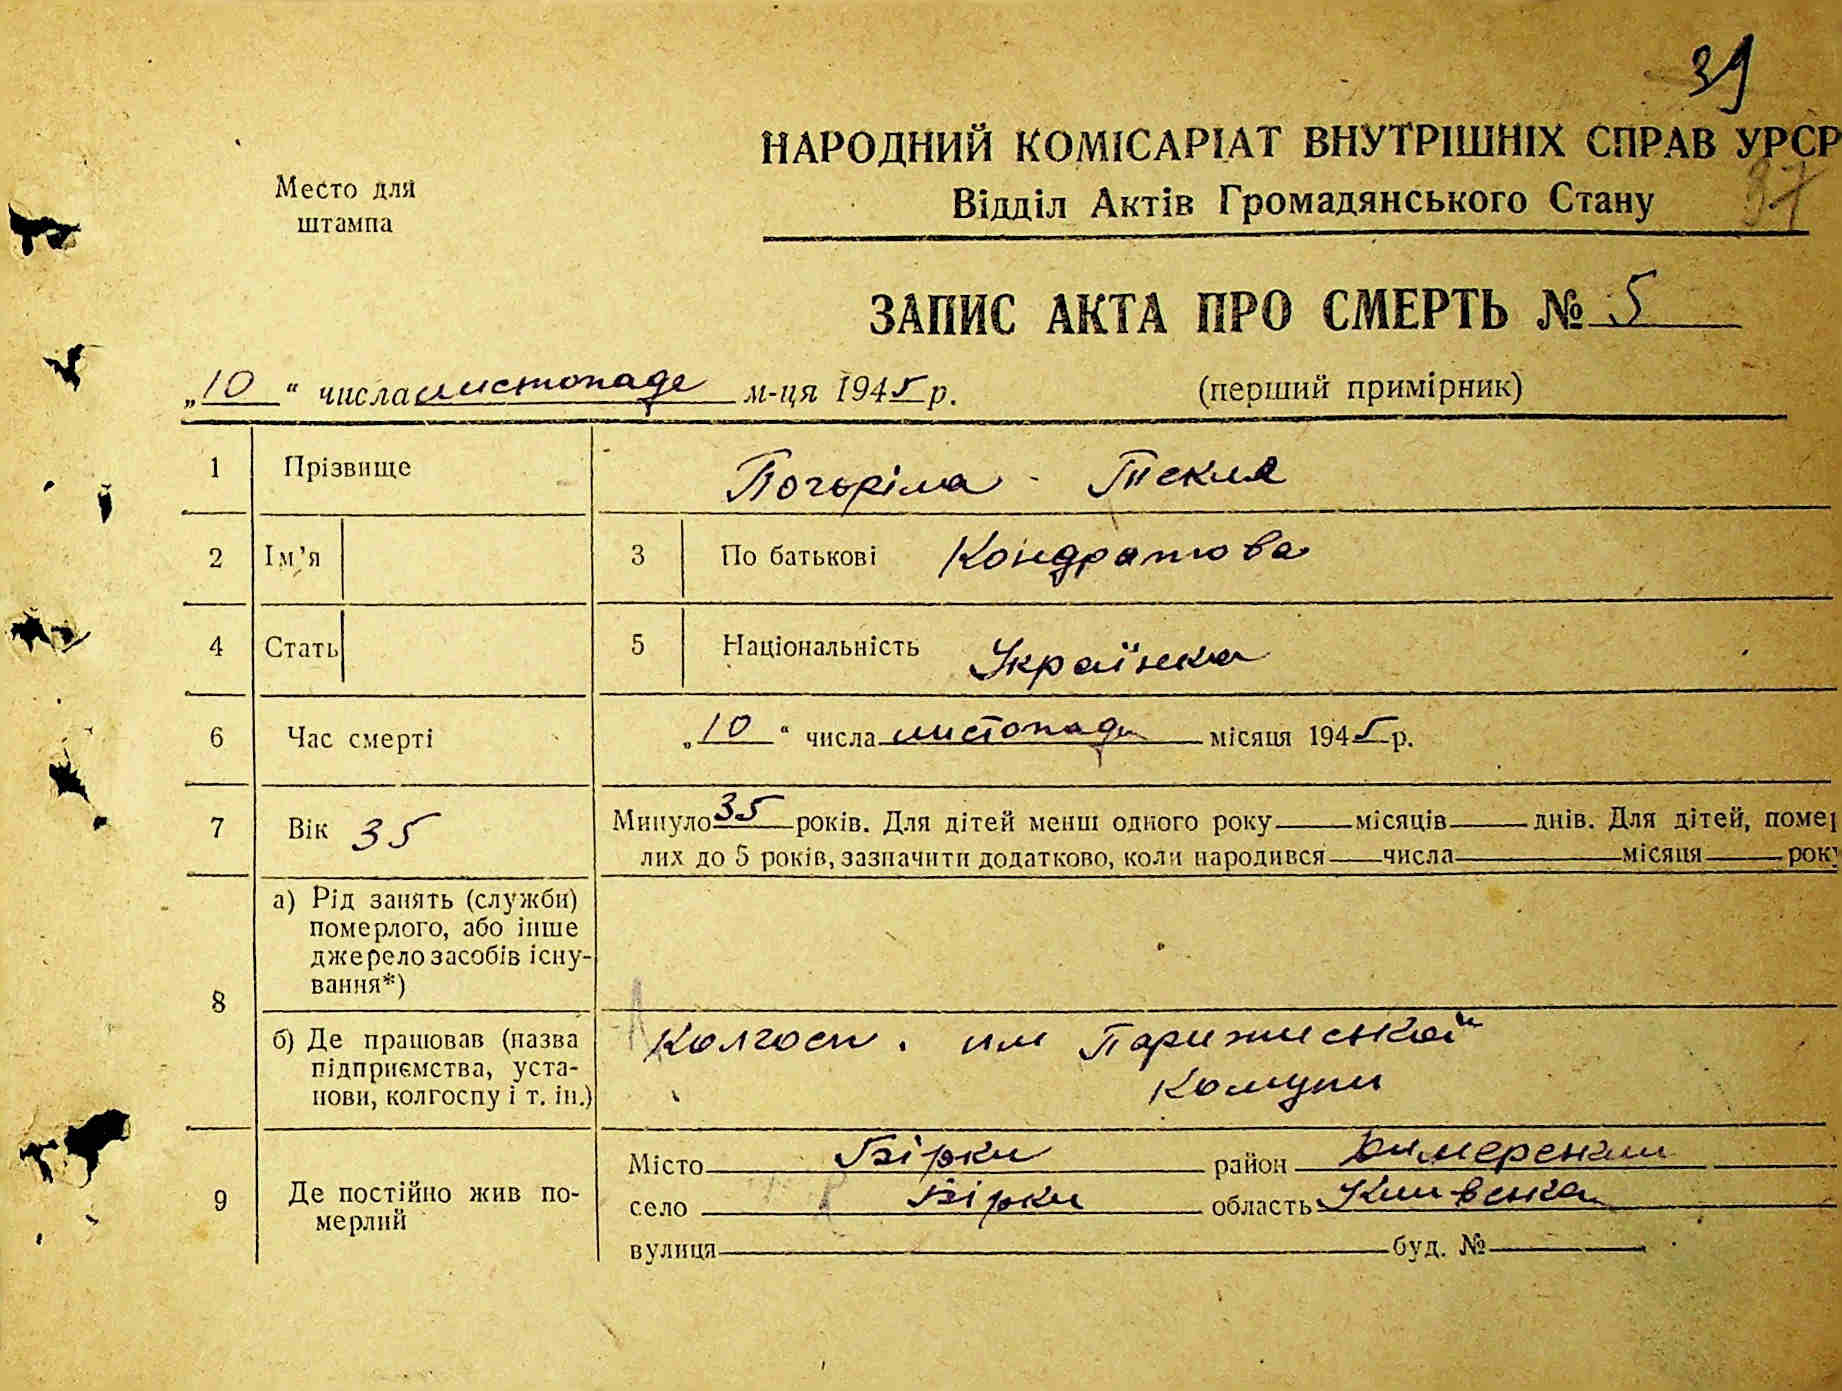 39
НАРОДНИЙ КОМІСАРІАТ ВНУТРІШНІХ СПРАВ УРСР
37
Место для
штампа
Відділ Актів Громадянського Стану
ЗАПИС АКТА ПРО СМЕРТЬ № 5
„10“ числа листопаде м-ця 1945 р. (перший примірник)
1 Прізвище Погьріла Текля
2 Ім’я 3 По батькові Кондратова
4 Стать 5 Національність Українка
6 Час смерті „10“ числа листопаде місяця 1945 р.
7 Вік 35 Минуло 35 років. Для дітей менш одного року місяців днів. Для дітей, помер
лих до 5 років, зазначити додатково, коли народився числа місяця року
8 а) Рід занять (служби)
померлого, або інше
джерело засобів існу-
вання*)
б) Де працював (назва
підприємства, уста-
нови, колгоспу і т. ін.)
Колгосп. им Парижиської
Комуни
9 Де постійно жив по-
мерлий
Місто Бірки район Димеренки
село Бірки область Киівска
вулиця буд. №